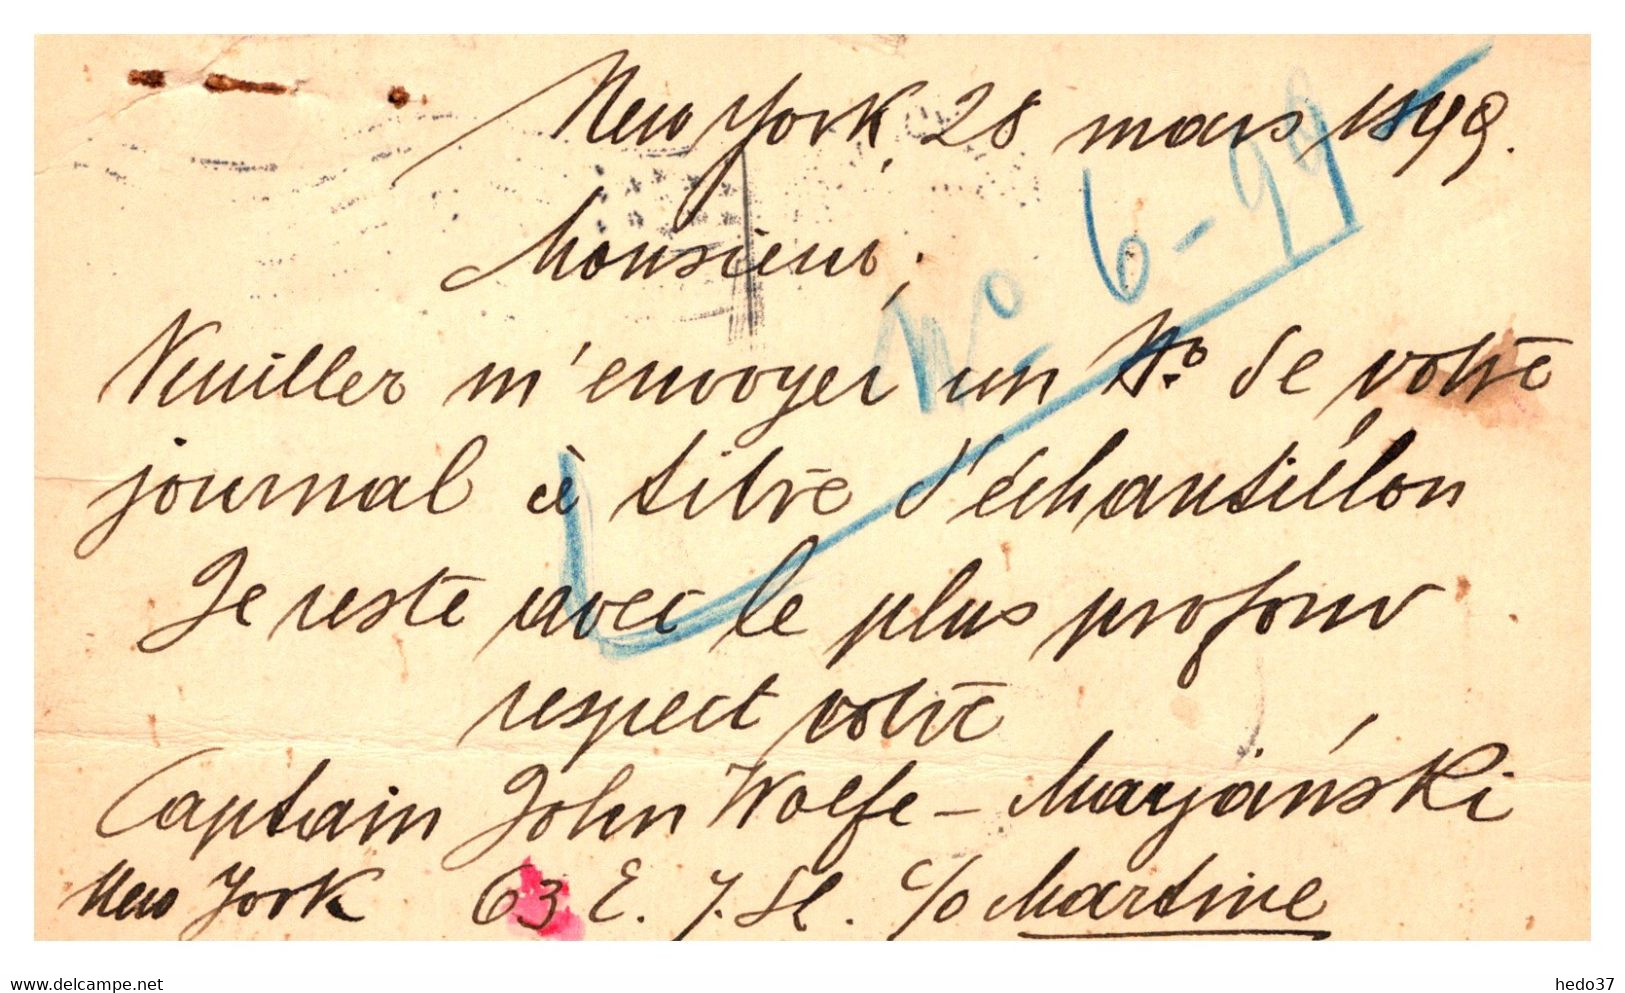 New York, 28 mars 1899.
No 6-99
Monsieur,
Veuiller m'envoyer un No. de votre
journal à titre d'échantillon
Je reste avec le plus profond
respect votre
Captain John Wolfe - Marjański
New York 63 E. 7. St. c/o Martine
www.delcampe.net
hedo37